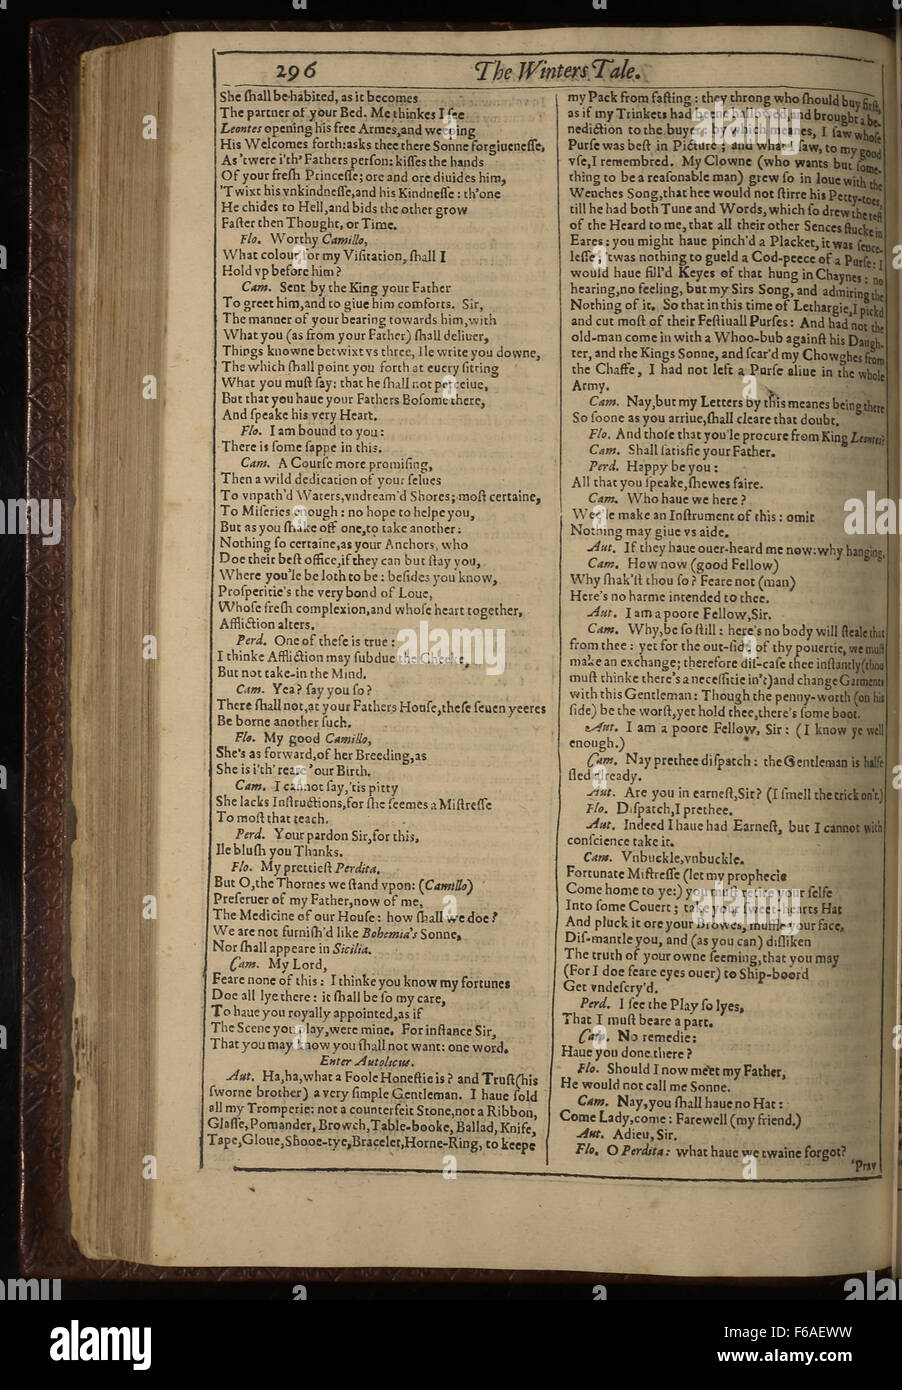 296 The Winters Tale.
She ſhall be habited, as it becomes
The partner of your Bed. Me thinkes I ſee
Leontes opening his free Armes,and weeping
His Welcomes forth:asks thee there Sonne forgiueneſſe,
As 'twere i'th' Fathers perſon: kiſſes the hands
Of your freſh Princeſſe; ore and ore diuides him,
'Twixt his vnkindneſſe,and his Kindneſſe: th'one
He chides to Hell,and bids the other grow
Faſter then Thought, or Time.
Flo. Worthy Camillo,
What colour for my Viſitation, ſhall I
Hold vp before him?
Cam. Sent by the King your Father
To greet him,and to giue him comforts. Sir,
The manner of your bearing towards him,with
What you (as from your Father) ſhall deliuer,
Things knowne betwixt vs three, Ile write you downe,
The which ſhall point you forth at euery ſitting
What you muſt ſay: that he ſhall not perceiue,
But that you haue your Fathers Boſome there,
And ſpeake his very Heart.
Flo. I am bound to you:
There is ſome ſappe in this.
Cam. A Courſe more promiſing,
Then a wild dedication of your ſelues
To vnpath'd Waters,vndream'd Shores; moſt certaine,
To Miſeries enough: no hope to helpe you,
But as you ſhake off one,to take another:
Nothing ſo certaine,as your Anchors, who
Doe their beſt office,if they can but ſtay you,
Where you'le be loth to be: beſides you know,
Proſperitie's the very bond of Loue,
Whoſe freſh complexion,and whoſe heart together,
Affliction alters.
Perd. One of theſe is true:
I thinke Affliction may ſubdue the Cheeke,
But not take-in the Mind.
Cam. Yea? ſay you ſo?
There ſhall not,at your Fathers Houſe,theſe ſeuen yeeres
Be borne another ſuch.
Flo. My good Camillo,
She's as forward,of her Breeding,as
She is i'th' reare 'our Birth.
Cam. I cannot ſay,'tis pitty
She lacks Inſtructions,for ſhe ſeemes a Miſtreſſe
To moſt that teach.
Perd. Your pardon Sir,for this,
Ile bluſh you Thanks.
Flo. My prettieſt Perdita.
But O,the Thornes we ſtand vpon: (Camillo)
Preſeruer of my Father,now of me,
The Medicine of our Houſe: how ſhall we doe?
We are not furniſh'd like Bohemia's Sonne,
Nor ſhall appeare in Sicilia.
Cam. My Lord,
Feare none of this: I thinke you know my fortunes
Doe all lye there: it ſhall be ſo my care,
To haue you royally appointed,as if
The Scene you play,were mine. For inſtance Sir,
That you may know you ſhall not want: one word.
Enter Autolicus.
Aut. Ha,ha,what a Foole Honeſtie is? and Truſt(his
ſworne brother) a very ſimple Gentleman. I haue ſold
all my Tromperie: not a counterfeit Stone,not a Ribbon,
Glaſſe,Pomander, Browch,Table-booke, Ballad, Knife,
Tape,Gloue,Shooe-tye,Bracelet,Horne-Ring, to keepe
my Pack from faſting: they throng who ſhould buy firſt,
as if my Trinkets had beene hallowed,and brought a be-
nediction to the buyer: by which meanes, I ſaw whoſe
Purſe was beſt in Picture; and what I ſaw, to my good
vſe,I remembred. My Clowne (who wants but ſome-
thing to be a reaſonable man) grew ſo in loue with the
Wenches Song,that hee would not ſtirre his Petty-toes,
till he had both Tune and Words, which ſo drew the reſt
of the Heard to me, that all their other Sences ſtucke in
Eares: you might haue pinch'd a Placket,it was ſence-
leſſe; 'twas nothing to gueld a Cod-peece of a Purſe: I
would haue fill'd Keyes of that hung in Chaynes: no
hearing,no feeling, but my Sirs Song, and admiring the
Nothing of it. So that in this time of Lethargie,I pickd
and cut moſt of their Feſtiuall Purſes: And had not the
old-man come in with a Whoo-bub againſt his Daugh-
ter, and the Kings Sonne, and ſcar'd my Chowghes from
the Chaffe, I had not left a Purſe aliue in the whole
Army.
Cam. Nay,but my Letters by this meanes being there
So ſoone as you arriue,ſhall cleare that doubt.
Flo. And thoſe that you'le procure from King Leontes?
Cam. Shall ſatisfie your Father.
Perd. Happy be you:
All that you ſpeake,ſhewes faire.
Cam. Who haue we here?
Wee'le make an Inſtrument of this: omit
Nothing may giue vs aide.
Aut. If they haue ouer-heard me now:why hanging.
Cam. How now (good Fellow)
Why ſhak'ſt thou ſo? Feare not (man)
Here's no harme intended to thee.
Aut. I am a poore Fellow,Sir.
Cam. Why,be ſo ſtill: here's no body will ſteale that
from thee: yet for the out-ſide of thy pouertie, we muſt
make an exchange; therefore diſ-caſe thee inſtantly(thou
muſt thinke there's a neceſſitie in't)and change Garments
with this Gentleman: Though the penny-worth (on his
ſide) be the worſt,yet hold thee,there's ſome boot.
Aut. I am a poore Fellow, Sir: (I know ye well
enough.)
Cam. Nay prethee diſpatch: the Gentleman is halfe
fled already.
Aut. Are you in earneſt,Sir? (I ſmell the trick on't.)
Flo. Diſpatch,I prethee.
Aut. Indeed I haue had Earneſt, but I cannot with
conſcience take it.
Cam. Vnbuckle,vnbuckle.
Fortunate Miſtreſſe (let my prophecie
Come home to ye:) you muſt retire your ſelfe
Into ſome Couert; take your ſweet-hearts Hat
And pluck it ore your Browes, muffle your face,
Diſ-mantle you, and (as you can) diſliken
The truth of your owne ſeeming,that you may
(For I doe feare eyes ouer) to Ship-boord
Get vndeſcry'd.
Perd. I ſee the Play ſo lyes,
That I muſt beare a part.
Cam. No remedie:
Haue you done there?
Flo. Should I now meet my Father,
He would not call me Sonne.
Cam. Nay,you ſhall haue no Hat:
Come Lady,come: Farewell (my friend.)
Aut. Adieu, Sir.
Flo. O Perdita: what haue we twaine forgot?
'Pray
alamy
alamy
alamy
alamy
Image ID: F6AEWW
www.alamy.com